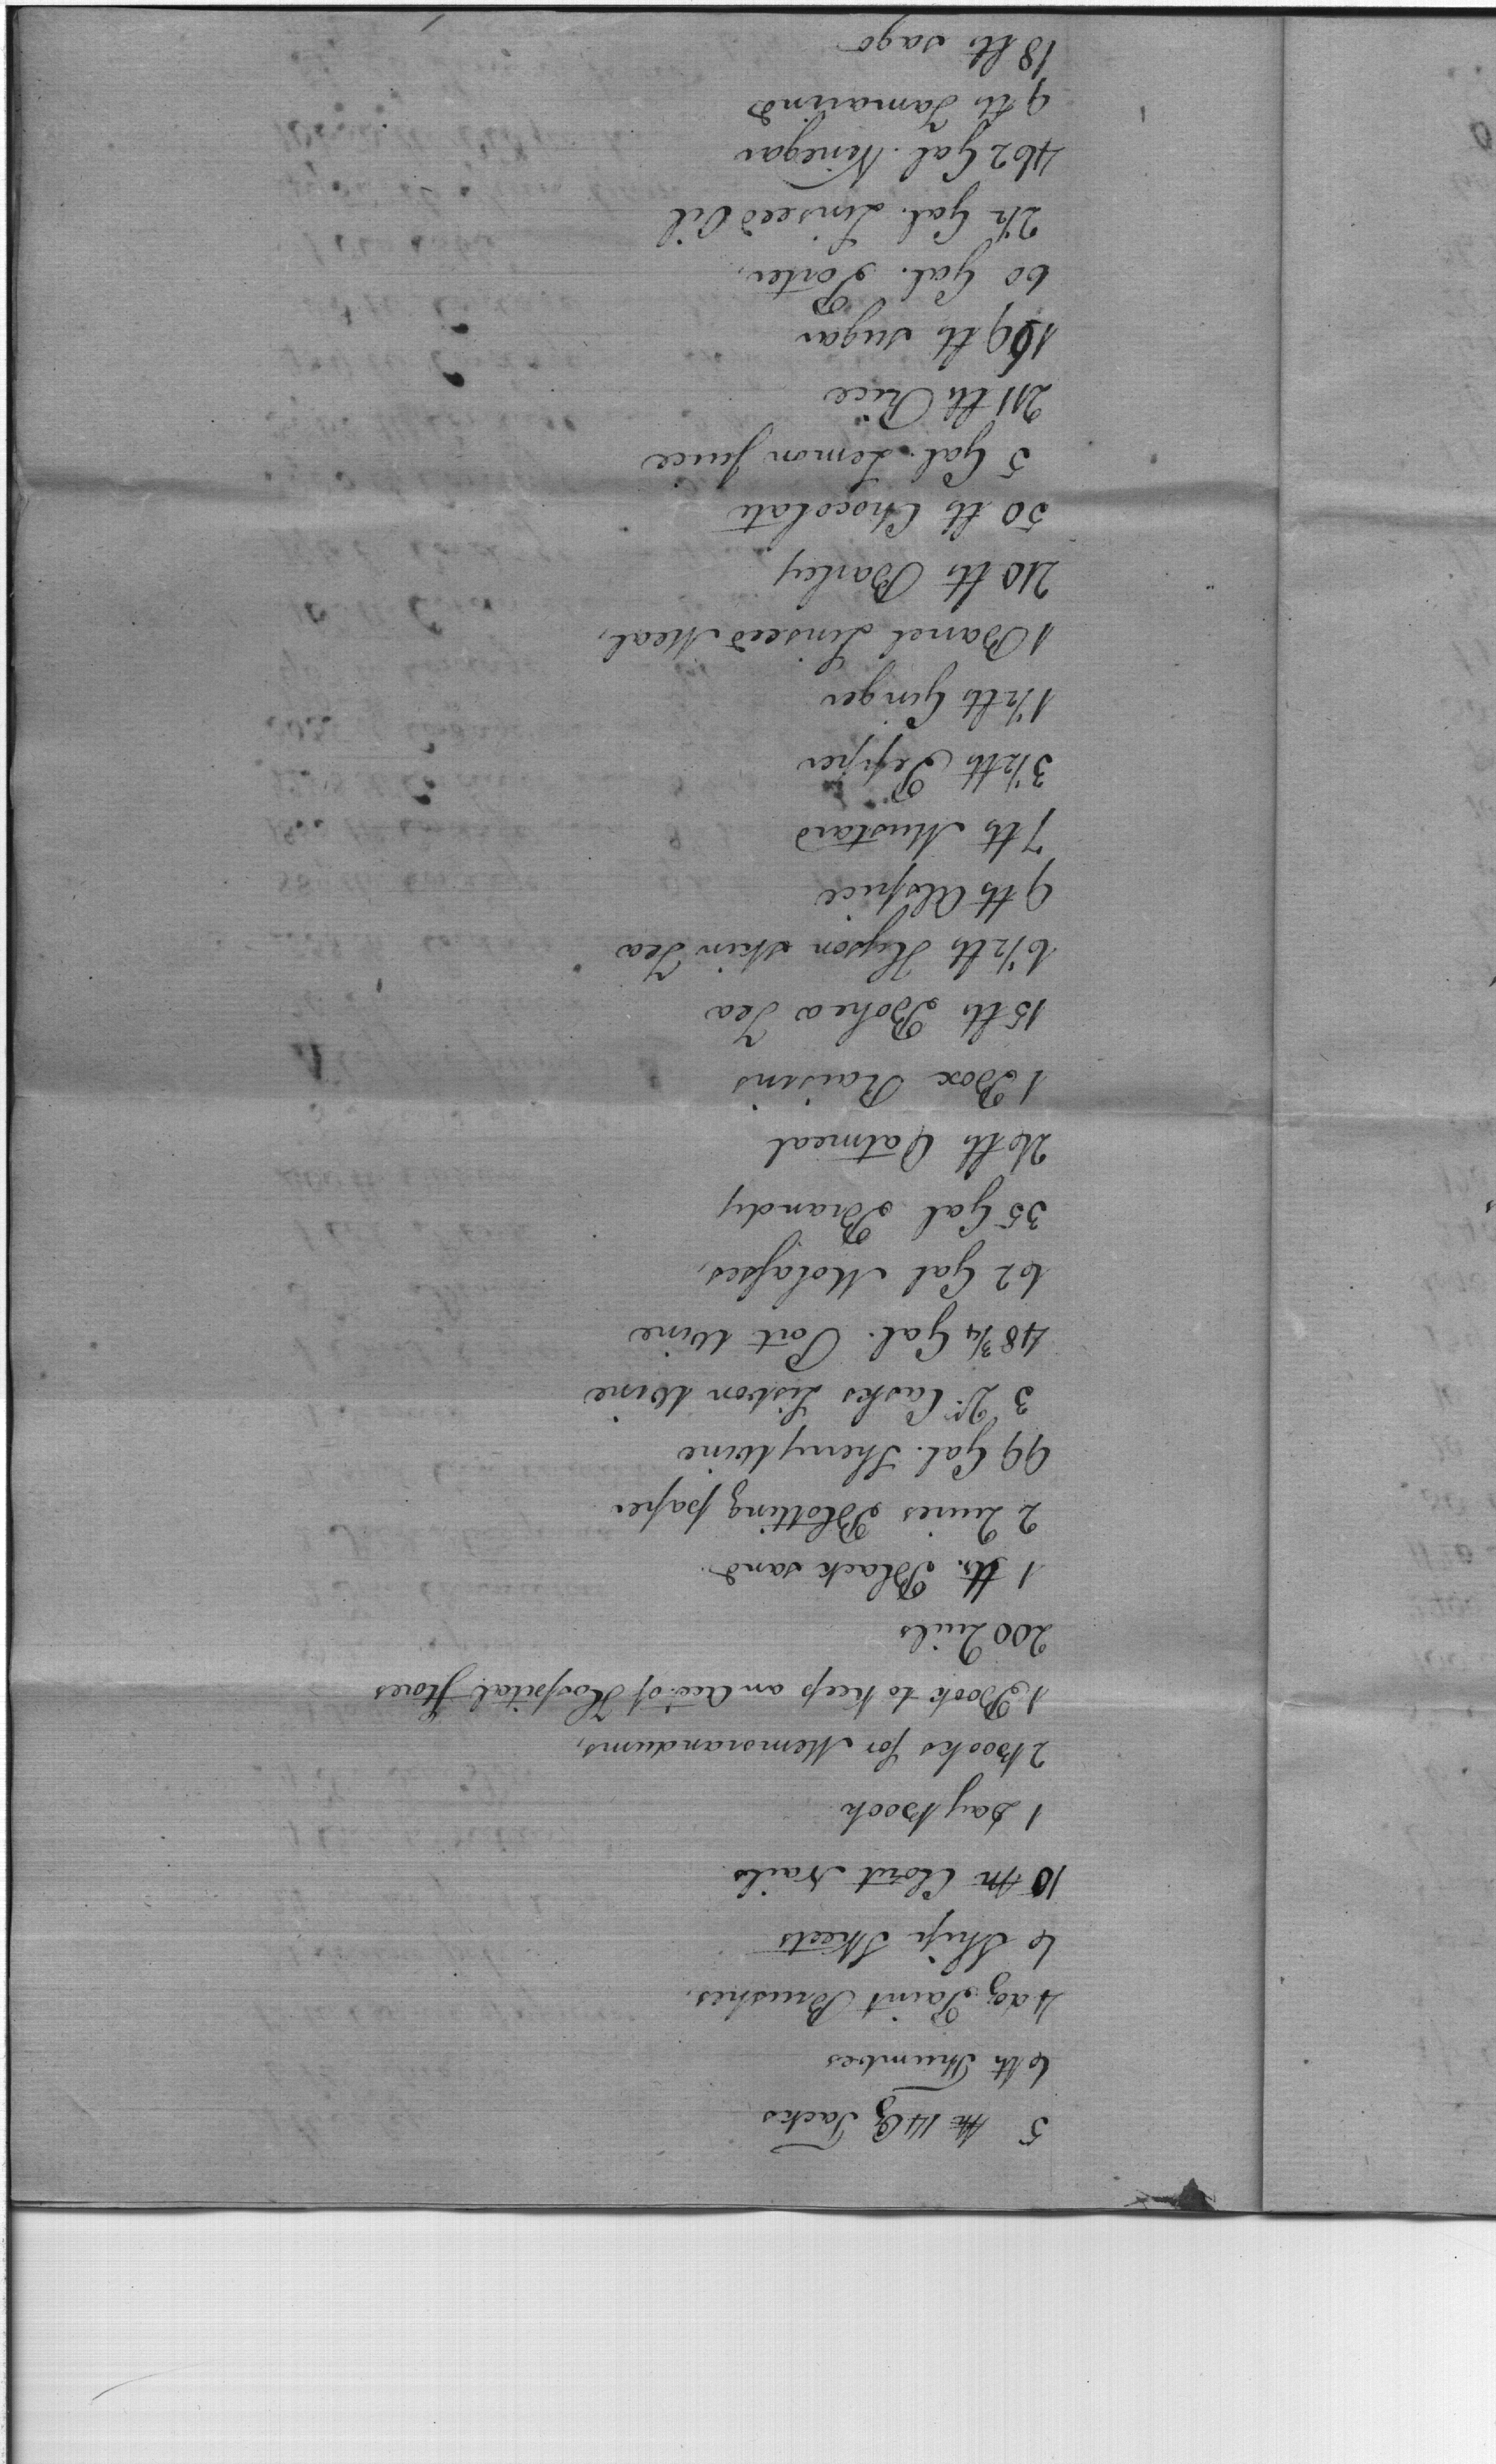 5 m 14 oz Tacks
6 lb Thumbes
4 doz. Paint Brushes.
6 Ship Skeets
10 m Clout Nails
1 Day Book
2 Books for Memorandums,
1 Book to keep an Acct. of Hospital Stores
200 Quils
1 lb. Black sand
2 Quires Blotting paper
99 Gal. Sherry Wine
3 Qr. Casks Lisbon Wine
48 3/4 Gal. Port Wine
62 Gal Molasses,
35 Gal Brandy
26 lb Oatmeal
1 Box Raisins
15 lb Bohea Tea
6 1/2 lb Hyson skin Tea
9 lb Alspice
7 lb Mustard
3 1/2 lb Pepper
1 1/2 lb Ginger
1 Barrel Linseed Meal,
210 lb Barley
50 lb Chocolate
5 Gal. Lemon Juice
211 lb Rice
169 lb sugar
60 Gal. Porter,
2 1/2 Gal. Linseed Oil
462 Gal. Vinegar
9 lb Tamarind
18 lb sago